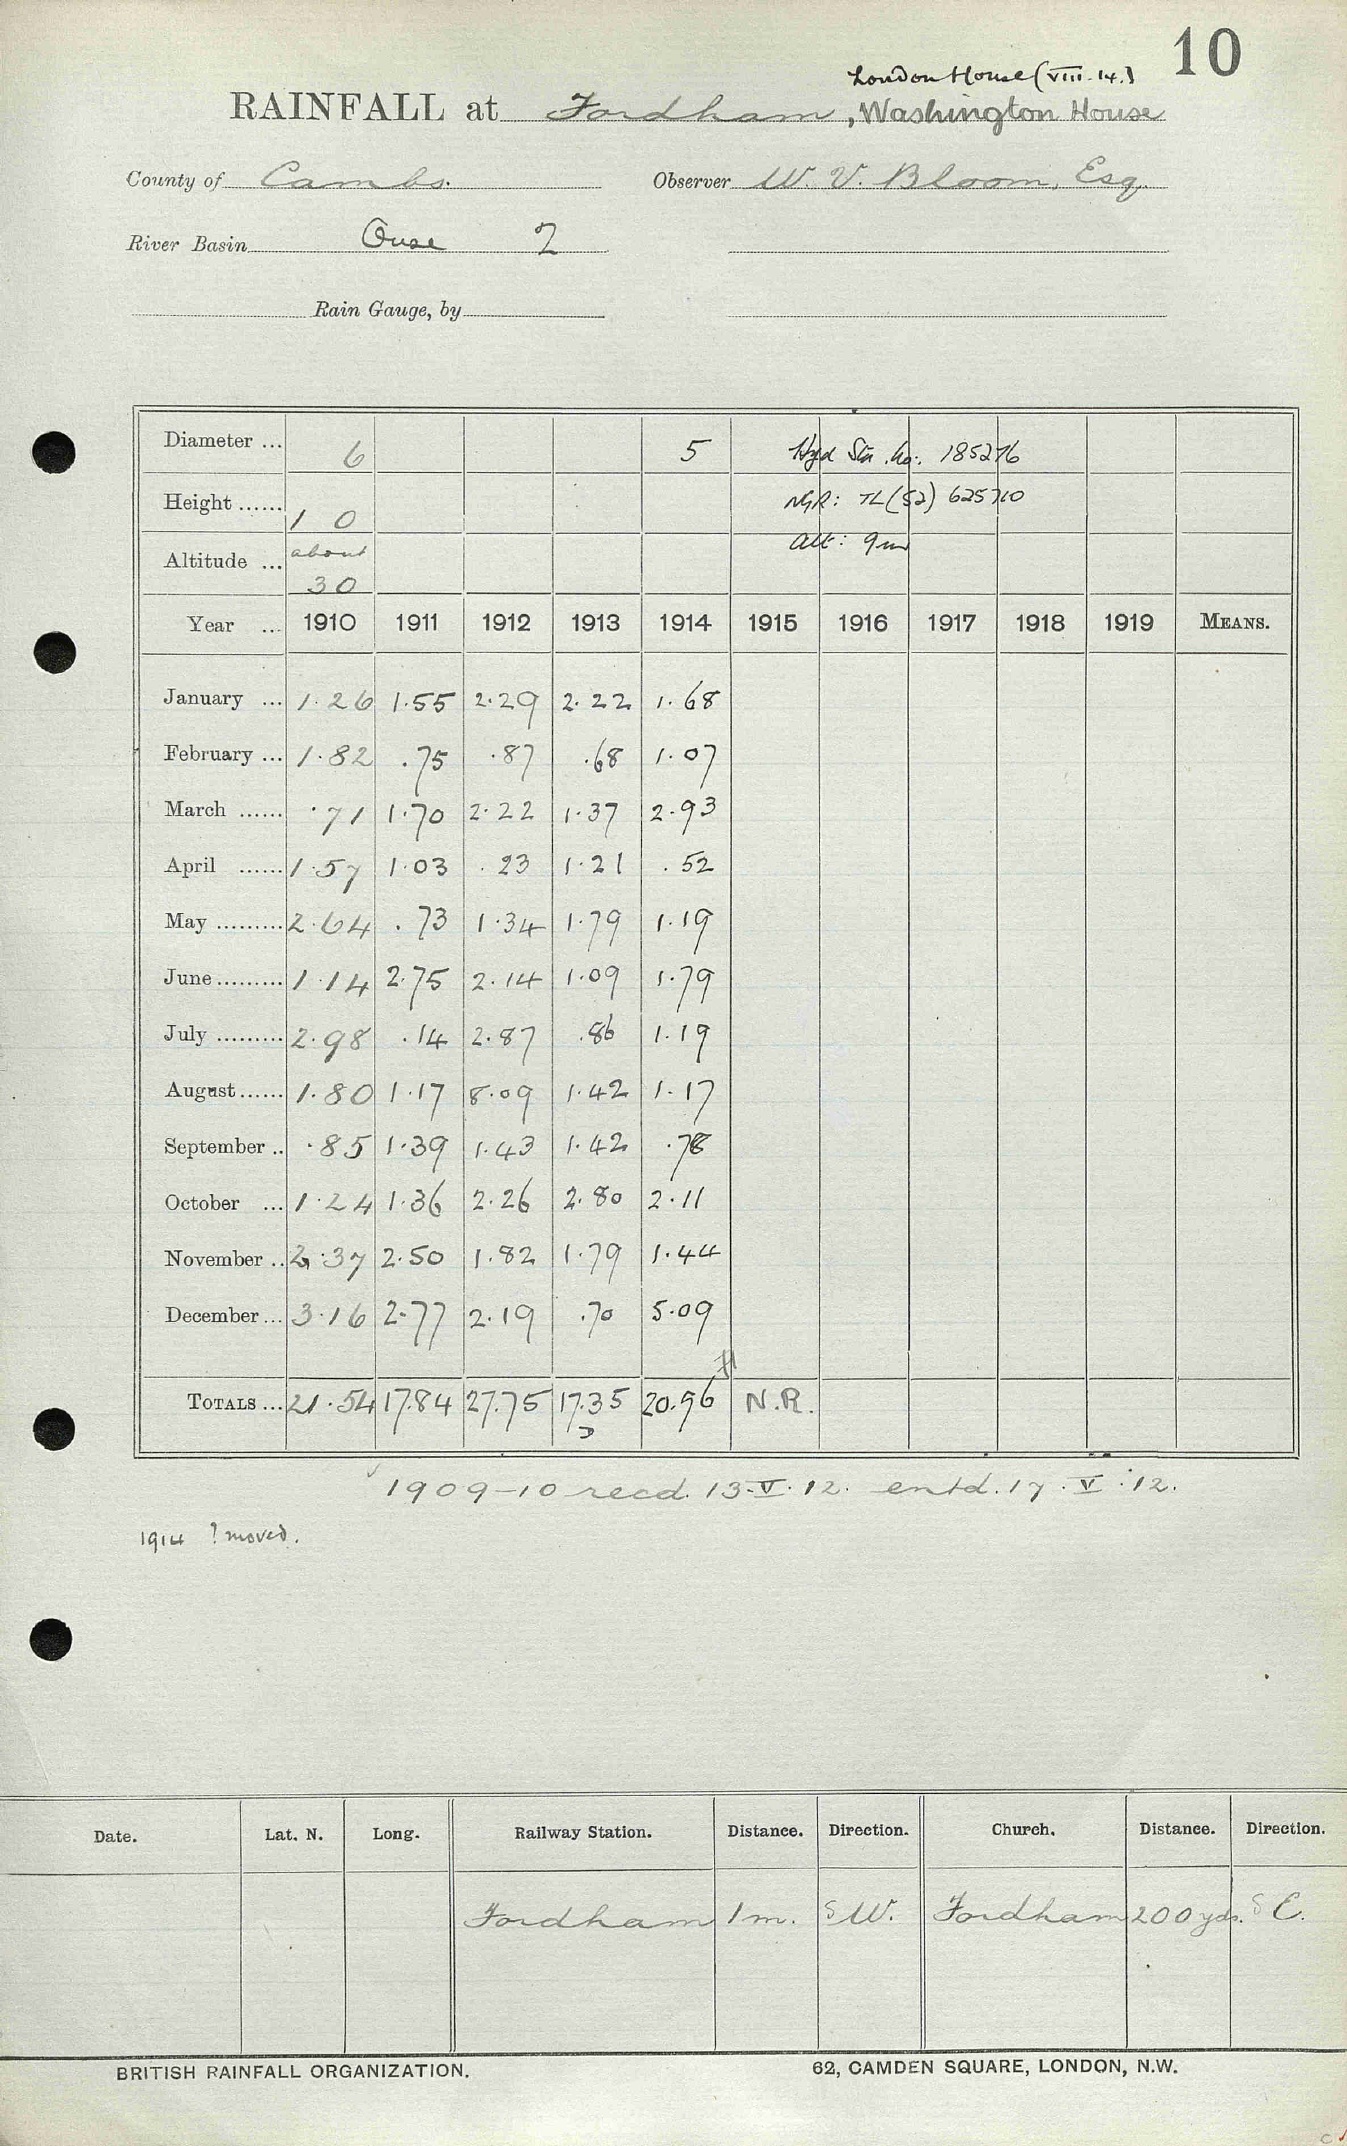 10
London House (VIII.14.)
RAINFALL at Fordham, Washington House
County of Cambs. Observer W. V. Bloom, Esq.
River Basin Ouse 2
Rain Gauge, by
Diameter ... 6 5 Hyd Stn. No: 185276
Height ...... 1 0 NGR: TL (52) 625710
Altitude ... about 30 Alt: 9m
Year ... 1910 1911 1912 1913 1914 1915 1916 1917 1918 1919 MEANS.
January ... 1.26 1.55 2.29 2.22 1.68
February ... 1.82 .75 .87 .68 1.07
March ...... .71 1.70 2.22 1.37 2.93
April ...... 1.57 1.03 .23 1.21 .52
May ......... 2.64 .73 1.34 1.79 1.19
June ......... 1.14 2.75 2.14 1.09 1.79
July ......... 2.98 .14 2.87 .86 1.19
August ...... 1.80 1.17 8.09 1.42 1.17
September .. .85 1.39 1.43 1.42 .78
October ... 1.24 1.36 2.26 2.80 2.11
November .. 2.37 2.50 1.82 1.79 1.44
December ... 3.16 2.77 2.19 .70 5.09
TOTALS ... 21.54 17.84 27.75 17.35 20.96 N.R.
1909-10 recd. 13.V.12. entd. 17.V.12.
1914 ? moved.
Date. Lat. N. Long. Railway Station. Distance. Direction. Church. Distance. Direction.
Fordham 1 m. SW. Fordham 200 yds. SE.
BRITISH RAINFALL ORGANIZATION. 62, CAMDEN SQUARE, LONDON, N.W.